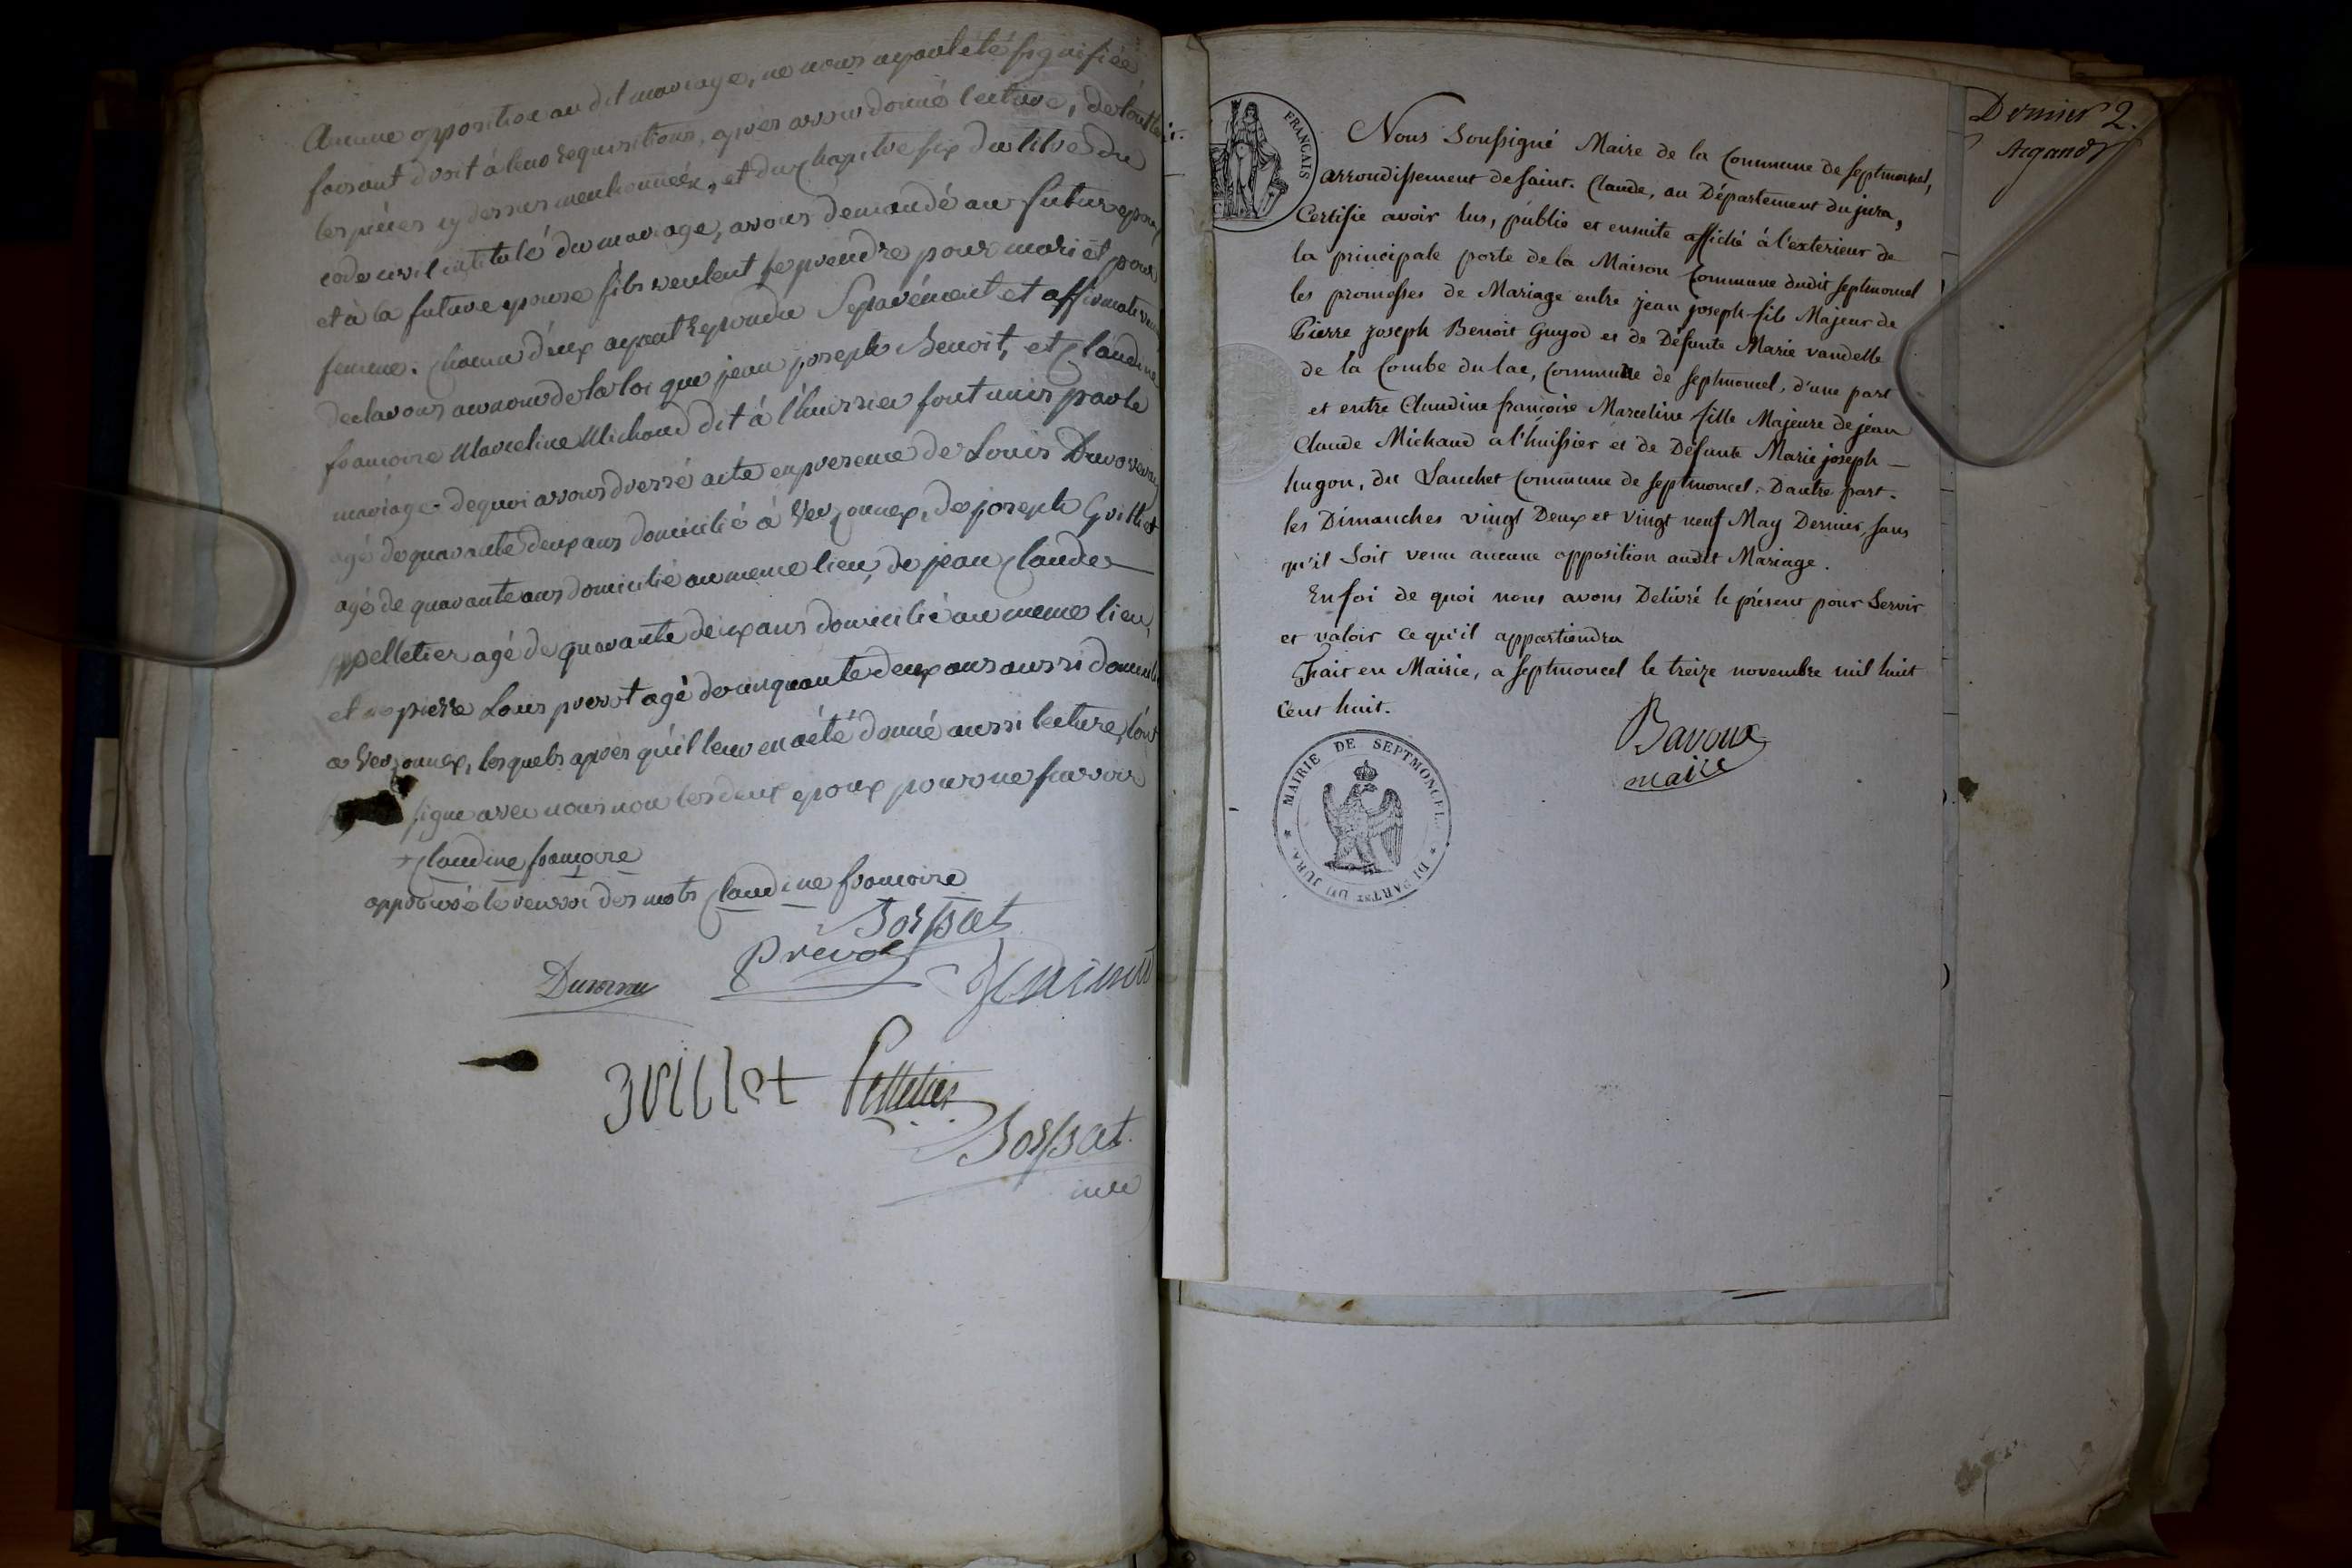 Aucune opposition au dit mariage, ne nous ayant été signifiée,
faisant droit à leur requisitions, après avoir donné lecture, de toutes
les pièces cy dessus mentionnées, et du chapitre six du titre du
code civil intitulé du mariage, avons demandé au futur epoux
et à la future epouse s'ils veulent se prendre pour mari et pour
femme. Chacun d'eux ayant repondu séparément et affirmativement
declarons au nom de la loi que jean joseph Benoit, et Claudine
francoise Marceline Michaud dit à l'huissier sont unis par le
mariage. dequoi avons dressé acte en presence de Louis
agé de quarante deux ans domicilié à Vesonnex, de joseph Grillet
agé de quarante ans domicilié au meme lieu, de jean Claude
pelletier agé de quarante deux ans domicilié au meme lieu,
et de pierre Louis prevot agé de cinquante deux ans aussi domicilié
a Vesonnex, lesquels après qu'il leur en a été donné aussi lecture, l'ont
signe avec nous non les deux epoux pour ne savoir
+ Claudine françoise
approuvé le renvoi des mots Claudine francoise
Prevot
Pelletier
FRANÇAIS
Dernier 2.
Nous Soussigné Maire de la Commune de septmoncel,
arrondissement de saint. Claude, au Département du jura,
Certifie avoir lus, publie et ensuite affiché à l'exterieur de
la principale porte de la Maison Commune dudit septmoncel
les promesses de Mariage entre jean joseph fils Majeur de
Pierre joseph Benoit Guyod et de Défunte Marie vandelle
de la Combe du lac, Commune de septmoncel, d'une part
et entre Claudine françoise Marceline fille Majeure de jean
Claude Michaud a l'huissier et de Défunte Marie joseph —
hugon, du Lauchet Commune de septmoncel, D'autre part.
les Dimanches vingt Deux et vingt neuf May Dernier, sans
qu'il soit venu aucune opposition audit Mariage.
En foi de quoi nous avons Delivré le présent pour Servir
et valoir ce qu'il appartiendra
Fait en Mairie, a septmoncel le treize novembre mil huit
cent huit.
Bavoux
maire
MAIRIE DE SEPTMONCEL * DEPARTᵗ DU JURA *